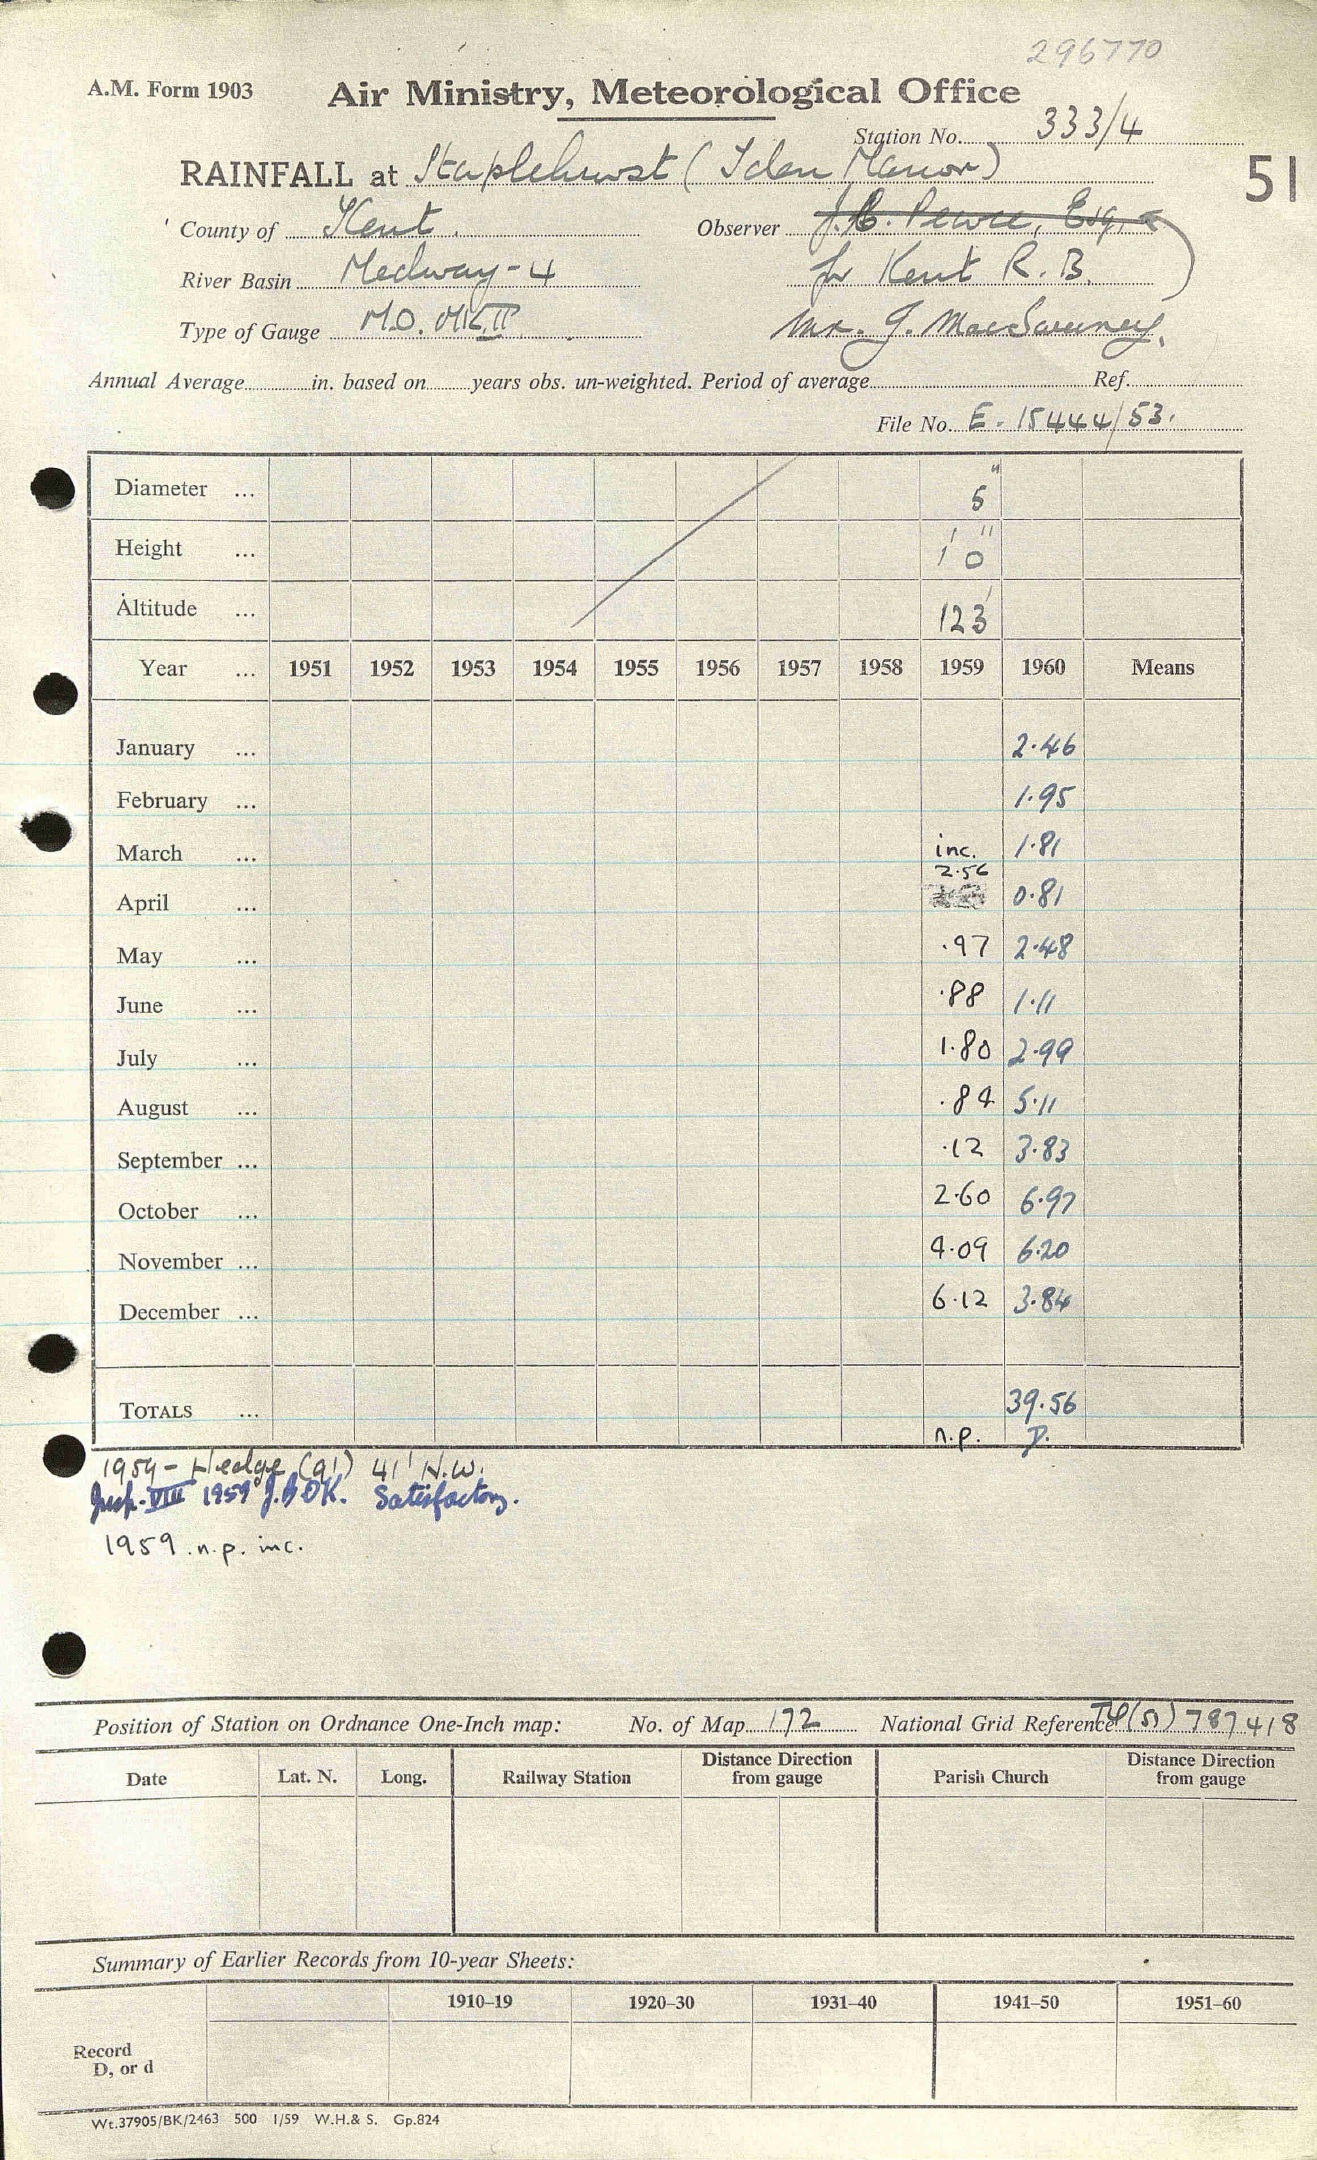 296770
A.M. Form 1903 Air Ministry, Meteorological Office
Station No. 333/4
RAINFALL at Staplehurst (Iden Manor) 51
County of Kent. Observer J. C. Pearce, Esq.
River Basin Medway-4 for Kent R. B.
Type of Gauge M.O. MK II Mr. J. MacSweeney.
Annual Average in. based on years obs. un-weighted. Period of average Ref.
File No. E. 15444/53.
Diameter ... 5"
Height ... 1' 0"
Altitude ... 123'
Year ... 1951 1952 1953 1954 1955 1956 1957 1958 1959 1960 Means
January ... 2.46
February ... 1.95
March ... inc. 1.81
April ... 2.56 0.81
May ... .97 2.48
June ... .88 1.11
July ... 1.80 2.99
August ... .84 5.11
September ... .12 3.83
October ... 2.60 6.97
November ... 4.09 6.20
December ... 6.12 3.84
TOTALS ... 39.56
n.p. D.
1959 - Hedge (9') 41' N.W.
Insp. VIII 1959 OK. Satisfactory.
1959 n.p. inc.
Position of Station on Ordnance One-Inch map: No. of Map 172 National Grid Reference TQ (51) 787418
Date Lat. N. Long. Railway Station Distance Direction from gauge Parish Church Distance Direction from gauge
Summary of Earlier Records from 10-year Sheets:
1910–19 1920–30 1931–40 1941–50 1951–60
Record
D, or d
Wt.37905/BK/2463 500 1/59 W.H.& S. Gp.824